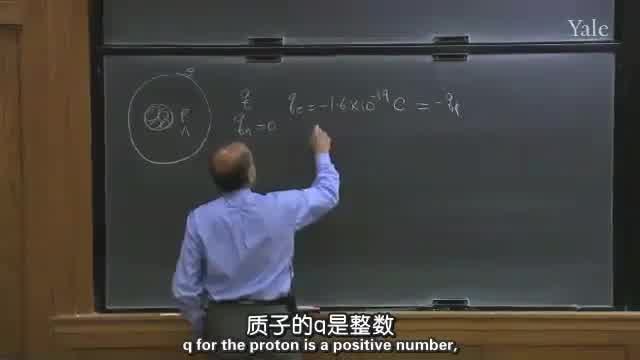 Yale
e
P
n
q qe = -1.6×10⁻¹⁹ C = -qp
qn = 0
质子的q是整数
q for the proton is a positive number,